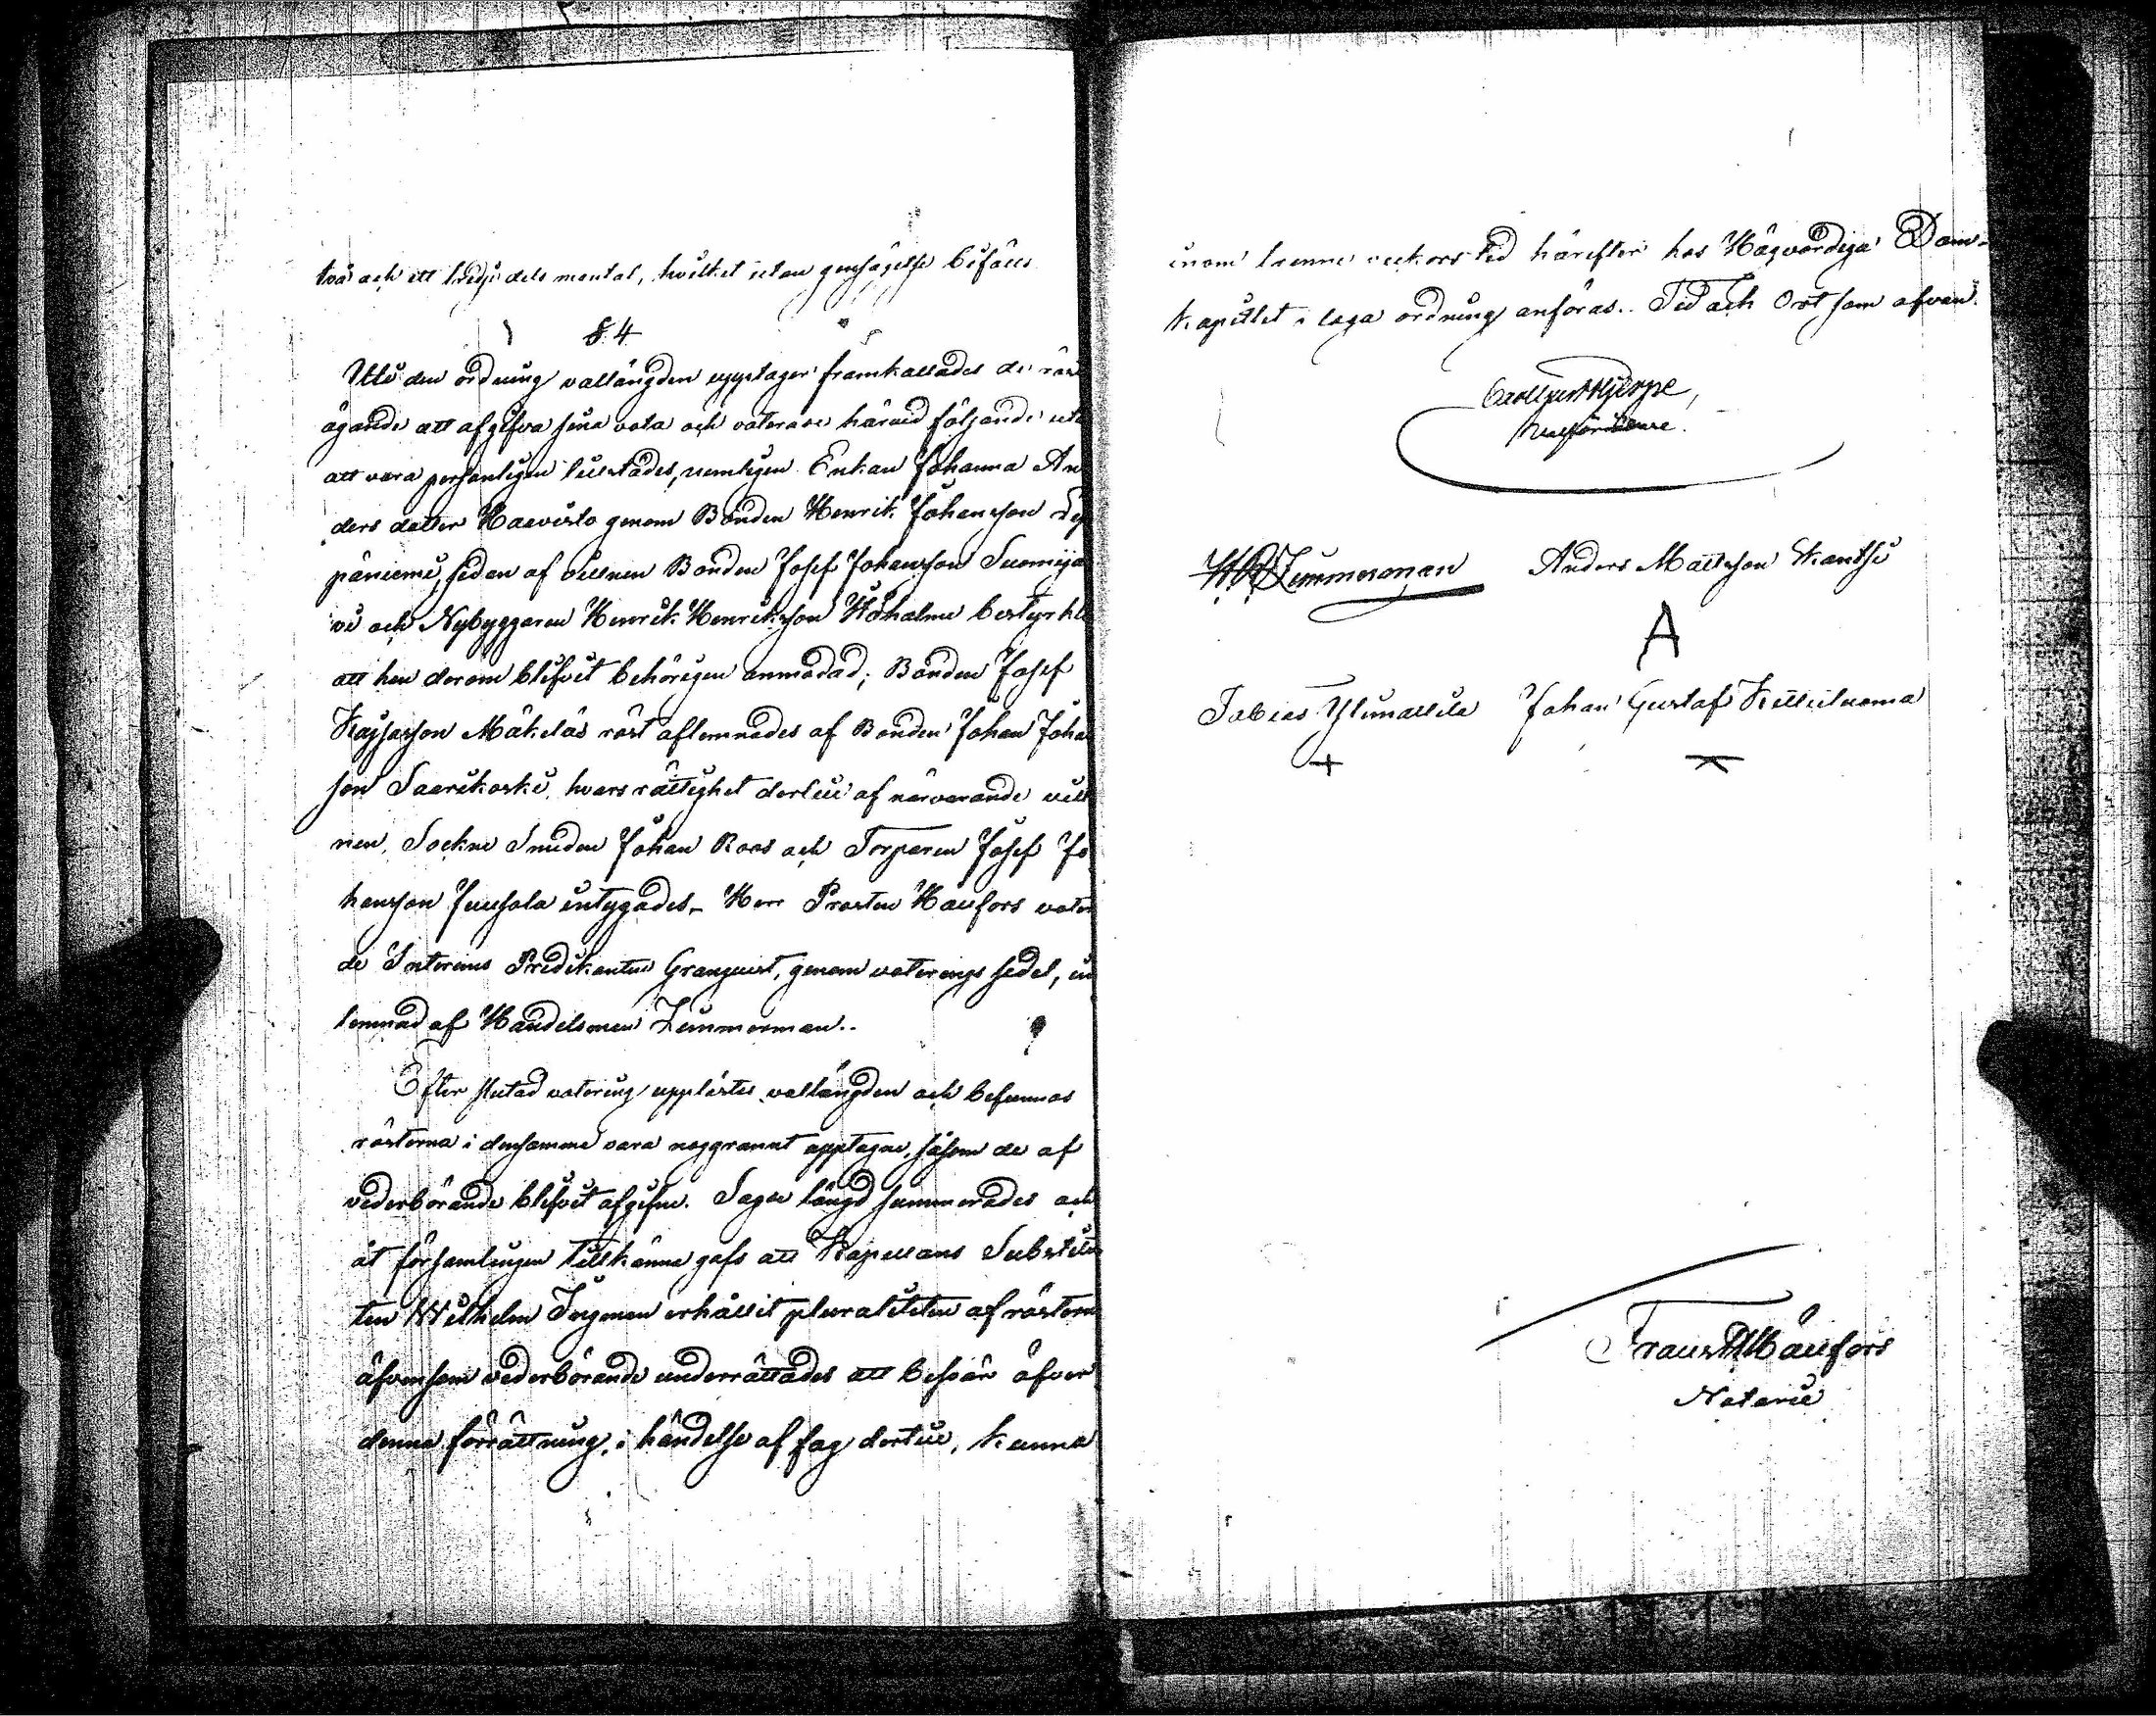 två och ett tredje dels mantal, hvilket utan gensägelse bifölls
§ 4
Uti den ordning vallängden upptager framkallades de röst
ägande att afgifva sina vota och voterade härvid följande utan
att vara personligen tillstädes, nemligen Enkan Johanna An
ders dotter Haavisto genom Bonden Henrik Johansson Lep
päniemi, sedan af vittnen Bonden Josef Johansson Suomija
vi och Nybyggaren Henrik Henriksson Höhalme bestyrkts
att han derom blifvit behörigen anmodad; Bonden Josef
Kajsasson Mäkeläs röst aflemnades af Bonden Johan Johans
son Saarikoski, hvars rättighet dertill af närvarande vitt
nen, Sockne Smeden Johan Roos och Torparen Josef Jo
hansson Juusola intygades. Herr Prosten Hällfors voter
de Interims Predikanten Granquist, genom voterings sedel, in
lemnad af Handelsman Zimmerman.
Efter slutad votering upplästes vallängden och befunnos
rösterna i densamma vara noggrannt upptagne, såsom de af
vederbörande blifvit afgifne. Sagde längd summerades och
åt församlingen tillkänna gafs att Kapellans Substitu
ten Wilhelm Ingman erhållit pluraliteten af rösterna
äfvensom vederbörande underrättades att besvär öfver
denna förrättning, i händelse af sag dertill, kunna
inom trenne veckors tid härefter hos Högvördiga Dom-
kapitlet i laga ordning anföras. Tid och Ort som ofvan.
Valförrättare.
Zimmerman Anders Mattsson Kantsi
A
Tobias Yliuallila Johan Gustaf
+ ×
Frans Hällfors
Notarie